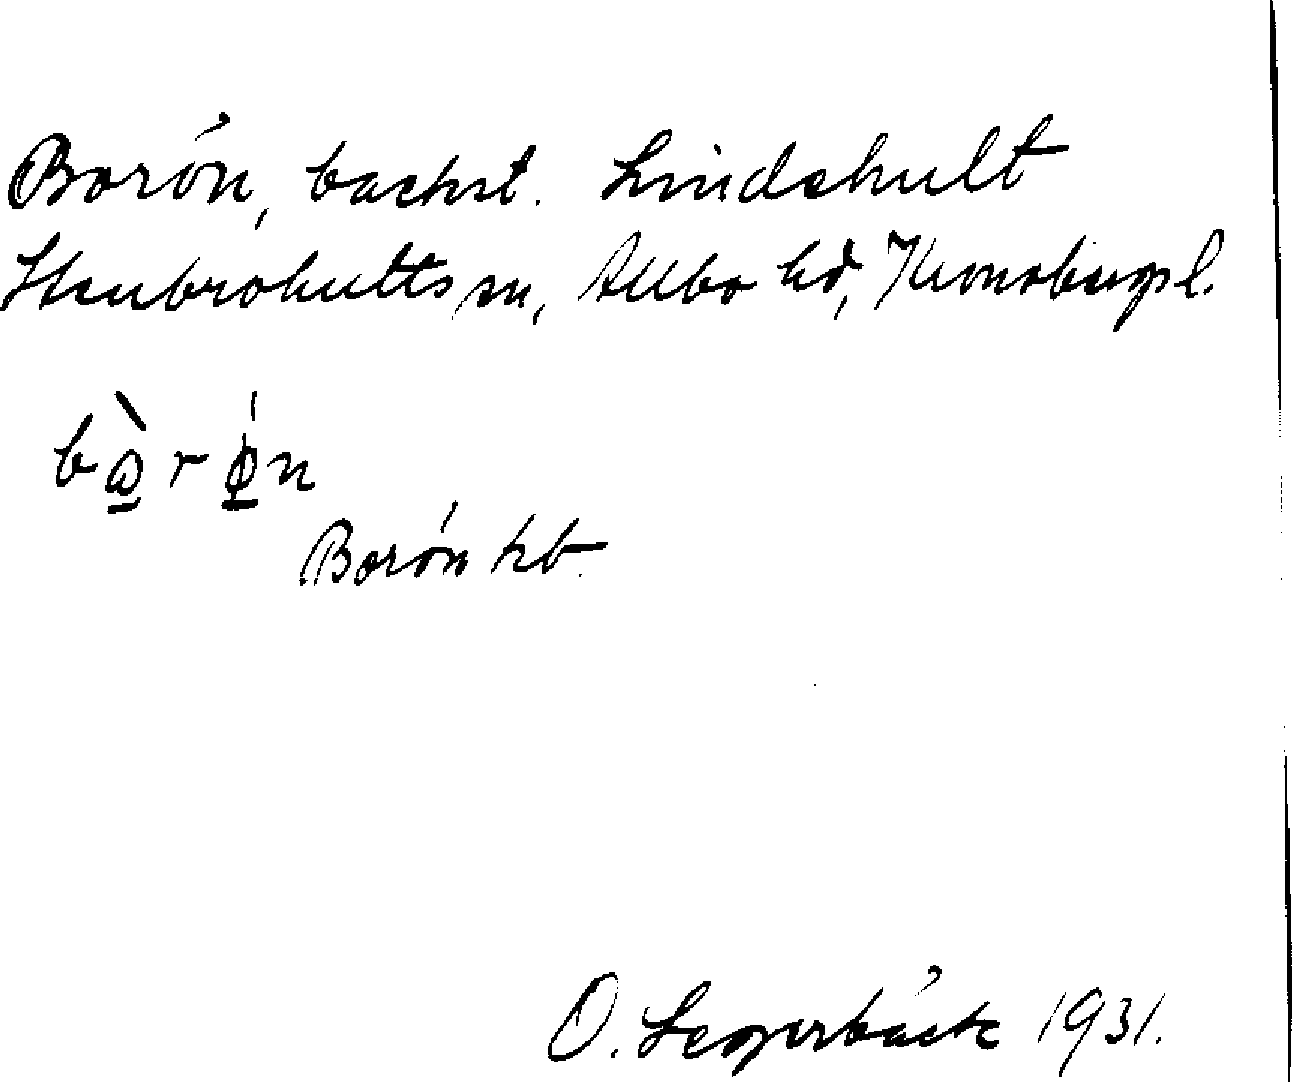 Borön, backst. Lindshult
Stenbrohults sn, Allbo hd, Kronobergs l.
bⱺ̲̀rǿ̲n
Borön kb.
O. Segerbäck 1931.